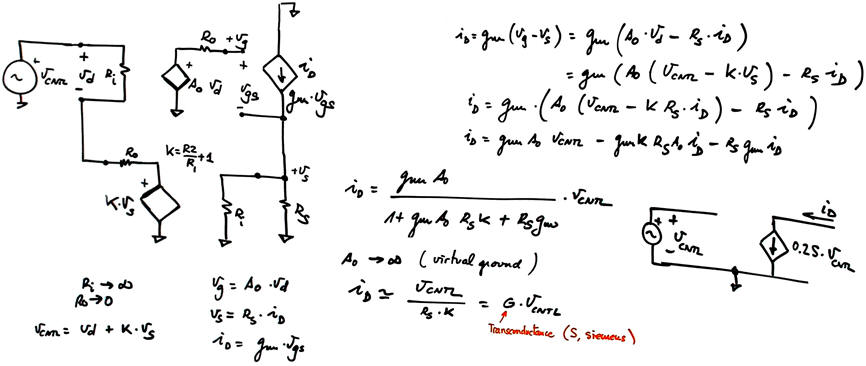 +
V_CNTL
+
V_d
-
R_i
R_o
+V_g
+
A_o V_d
V_gs
-
i_D
g_m·V_gs
R_o
K = R2/R_1 + 1
+
K·V_s
+V_s
R_i
R_s
R_i → ∞
R_o → 0
V_CNTL = V_d + K·V_s
V_g = A_o·V_d
V_s = R_s·i_D
i_D = g_m·V_gs
i_D = g_m (V_g - V_s) = g_m (A_o·V_d - R_s·i_D)
= g_m (A_o (V_CNTL - K·V_s) - R_s i_D)
i_D = g_m·(A_o (V_CNTL - K R_s·i_D) - R_s i_D)
i_D = g_m A_o V_CNTL - g_m K R_s A_o i_D - R_s g_m i_D
i_D = g_m A_o / (1 + g_m A_o R_s K + R_s g_m) · V_CNTL
A_o → ∞ (virtual ground)
i_D ≃ V_CNTL / (R_s·K) = G·V_CNTL
Transconductance (S, siemens)
+ +
V_CNTL
-
i_D
0.2S·V_CNTL